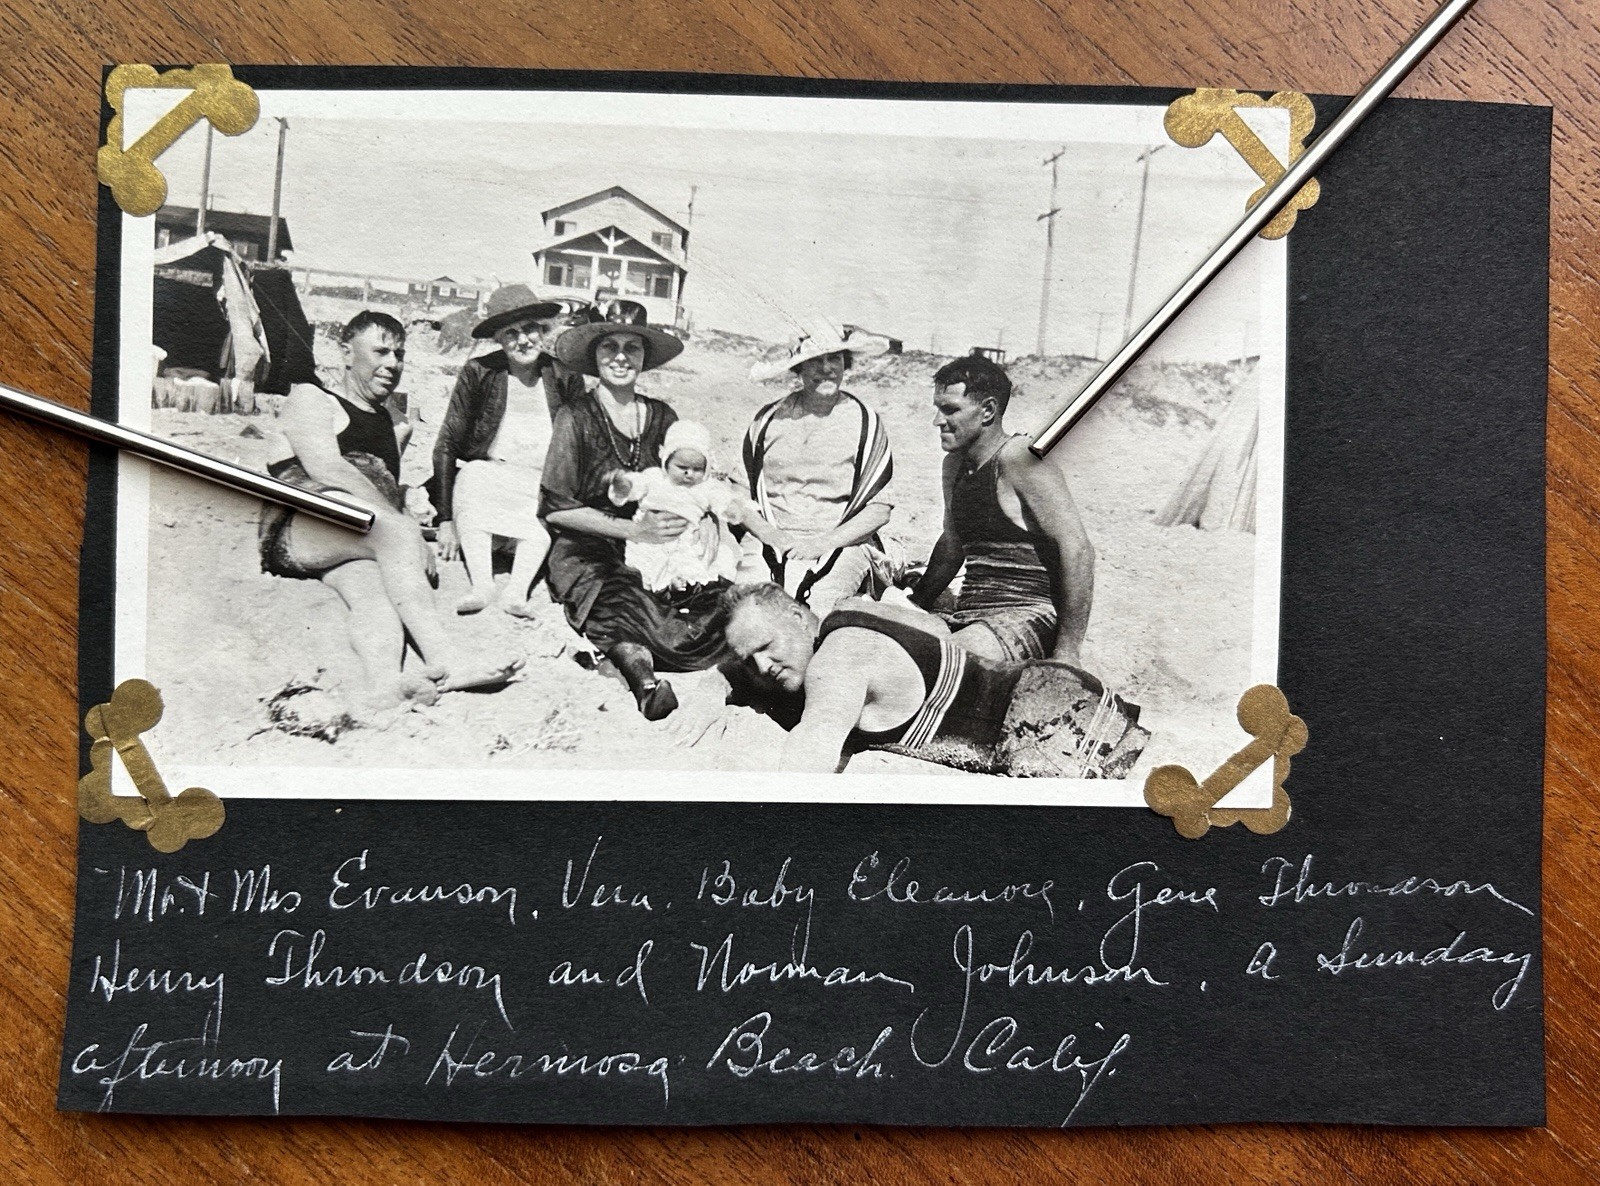 Mr. & Mrs Evanson, Vera. Baby Eleanore, Gene Throndson
Henry Throndson and Norman Johnson, a Sunday
afternoon at Hermosa Beach. Calif.